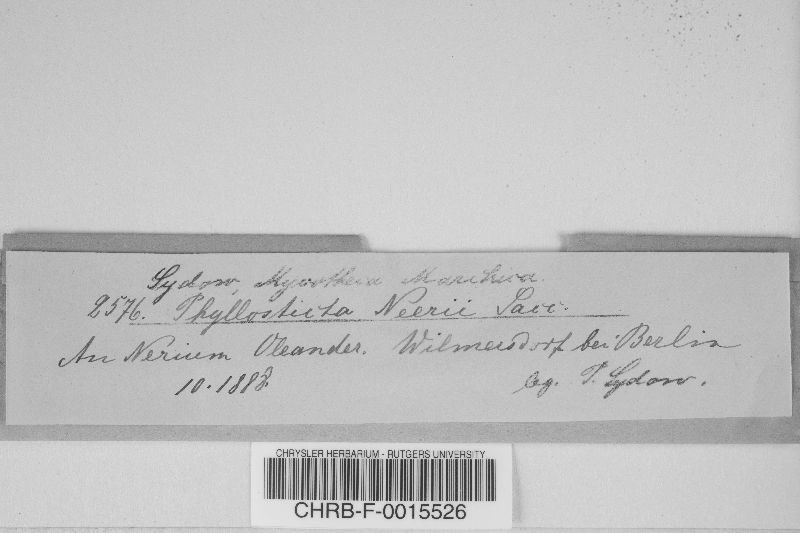 Sydow, Mycotheca Marchica.
2576. Phyllosticta Neerii Sacc.
An Nerium Oleander. Wilmersdorf bei Berlin
10.1888. leg. P. Sydow.
CHRYSLER HERBARIUM - RUTGERS UNIVERSITY
CHRB-F-0015526